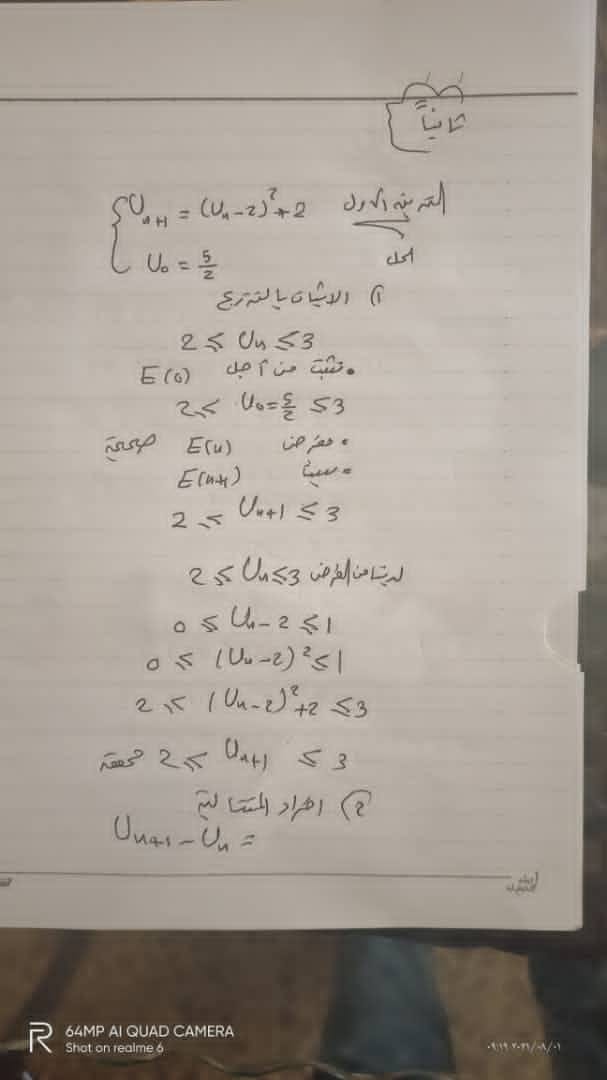 ثانياً
التمرين الاول U_{n+1} = (U_n - 2)^2 + 2
الحل U_0 = 5/2
1) الاثبات بالتدريج
2 ≤ U_n ≤ 3
• نثبت من أجل E(0)
2 ≤ U_0 = 5/2 ≤ 3
• نفرض E(n) صحيحة
• E(n+1)
2 ≤ U_{n+1} ≤ 3
لدينا من الفرض 2 ≤ U_n ≤ 3
0 ≤ U_n - 2 ≤ 1
0 ≤ (U_n - 2)^2 ≤ 1
2 ≤ (U_n - 2)^2 + 2 ≤ 3
2 ≤ U_{n+1} ≤ 3 محققة
2) اطراد المتتالية
U_{n+1} - U_n =
64MP AI QUAD CAMERA
Shot on realme 6
٢٠٢١/٠٨/٠١ ٠٩:١٩